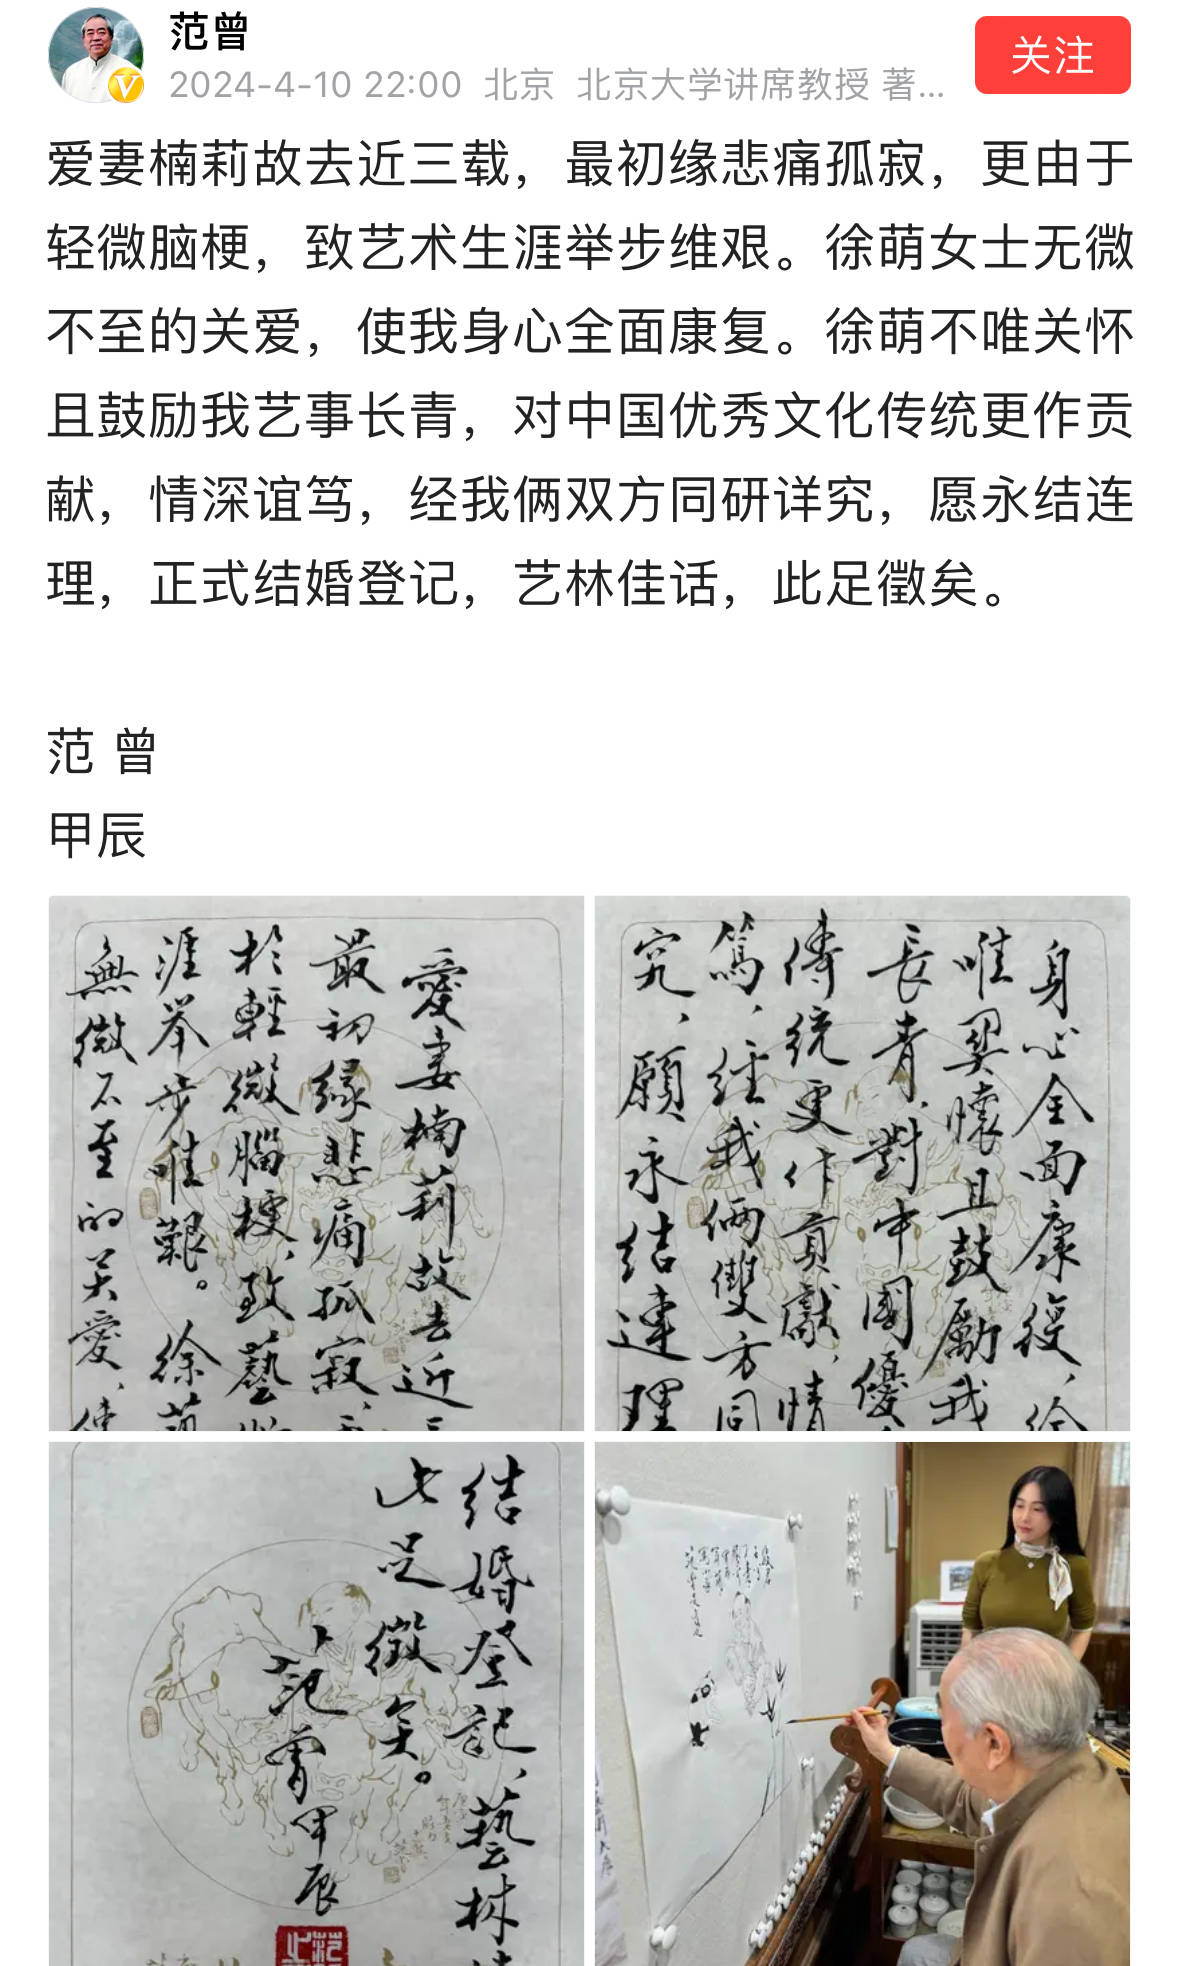 范曾
2024-4-10 22:00 北京 北京大学讲席教授 著...
关注
爱妻楠莉故去近三载，最初缘悲痛孤寂，更由于
轻微脑梗，致艺术生涯举步维艰。徐萌女士无微
不至的关爱，使我身心全面康复。徐萌不唯关怀
且鼓励我艺事长青，对中国优秀文化传统更作贡
献，情深谊笃，经我俩双方同研详究，愿永结连
理，正式结婚登记，艺林佳话，此足徵矣。
范 曾
甲辰
愛妻楠莉故去近三
最初缘悲痛孤寂，
於輕微腦梗，致藝
涯举步唯艱。徐萌
無微不至的关愛，使
身心全面康復，徐
唯関懷且鼓勵我
長青，對中國優
傳統更作貢獻，情
篤，经我俩雙方同
究，願永结連理
结婚登记，藝林
此足徵矣。
范曾甲辰